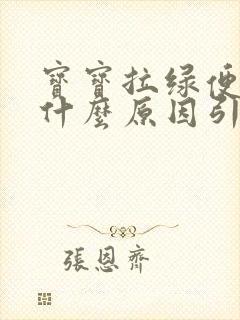 寳寳拉绿便
什麼原因引
張恩齊